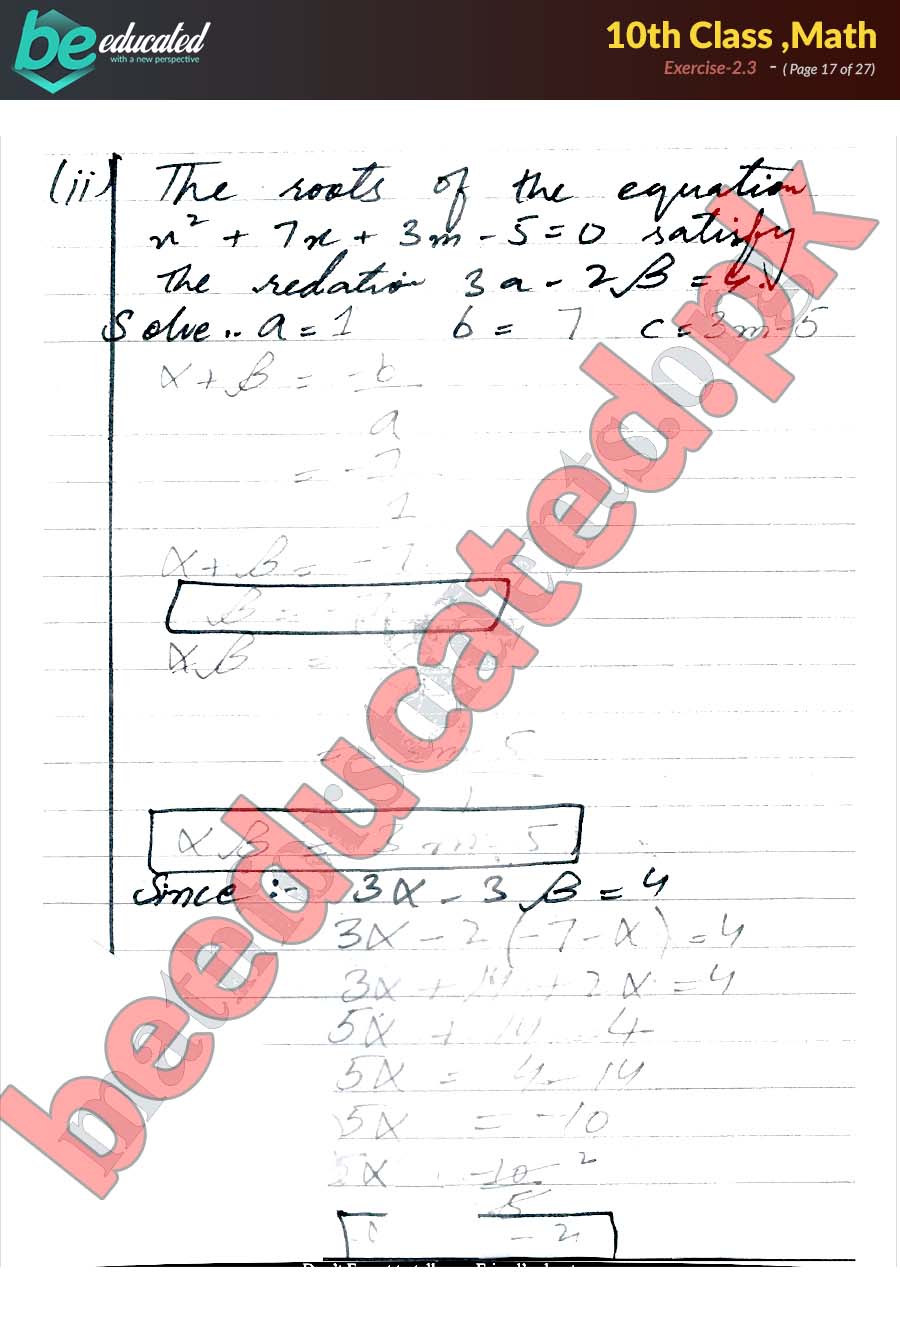 be educated
with a new perspective
10th Class ,Math
Exercise-2.3 - ( Page 17 of 27)
(ii) The roots of the equation
x² + 7x + 3m - 5 = 0 satisfy
the redation 3a - 2β = 4.
Solve:. a = 1 b = 7 c = 3m - 5
α + β = -b
a
= -7
1
α + β = -7
β = -7
αβ =
= 3m - 5
1
αβ = 3m - 5
Since :- 3α - 3β = 4
3α - 2 (-7 - α) = 4
3α + 14 + 2α = 4
5α + 14 = 4
5α = 4 - 14
5α = -10
5α -10 2
5
- 2
beeducated.pk